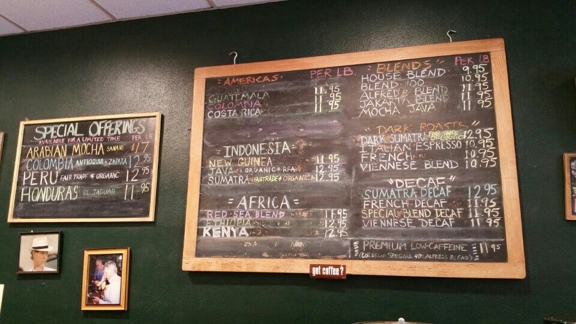 SPECIAL OFFERINGS
AVAILABLE FOR A LIMITED TIME PER LB.
ARABIAN MOCHA SANANI $17
COLOMBIA 12.95
PERU FAIR TRADE & ORGANIC 12.95
HONDURAS EL JAGUAR 11.95
AMERICAS PER LB
GUATEMALA 11.95
COLOMBIA 11.95
COSTA RICA 11.95
=INDONESIA=
NEW GUINEA 11.95
JAVA ORGANIC 12.95
SUMATRA FAIRTRADE & ORGANIC 12.95
=AFRICA=
RED SEA BLEND 11.95
ETHIOPIA 12.95
KENYA 12.95
"BLENDS" PER LB
HOUSE BLEND 9.95
BLEND 100 10.95
ALFRED'S BLEND 11.95
JAKARTA BLEND 11.95
MOCHA JAVA 11.95
"DARK ROASTS"
DARK SUMATRA 12.95
ITALIAN ESPRESSO 10.95
FRENCH 10.95
VIENNESE BLEND 10.95
"DECAF"
SUMATRA DECAF 12.95
FRENCH DECAF 11.95
SPECIAL BLEND DECAF 11.95
VIENNESE DECAF 11.95
PREMIUM LOW-CAFFEINE 11.95
got coffee?